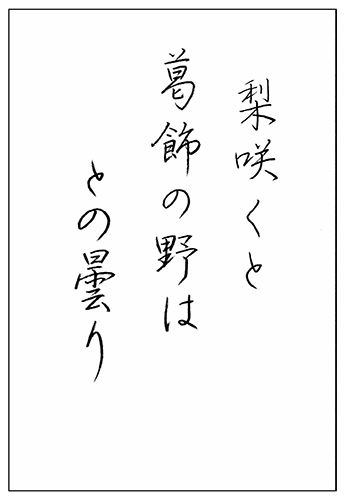 梨咲くと
葛飾の野は
との曇り